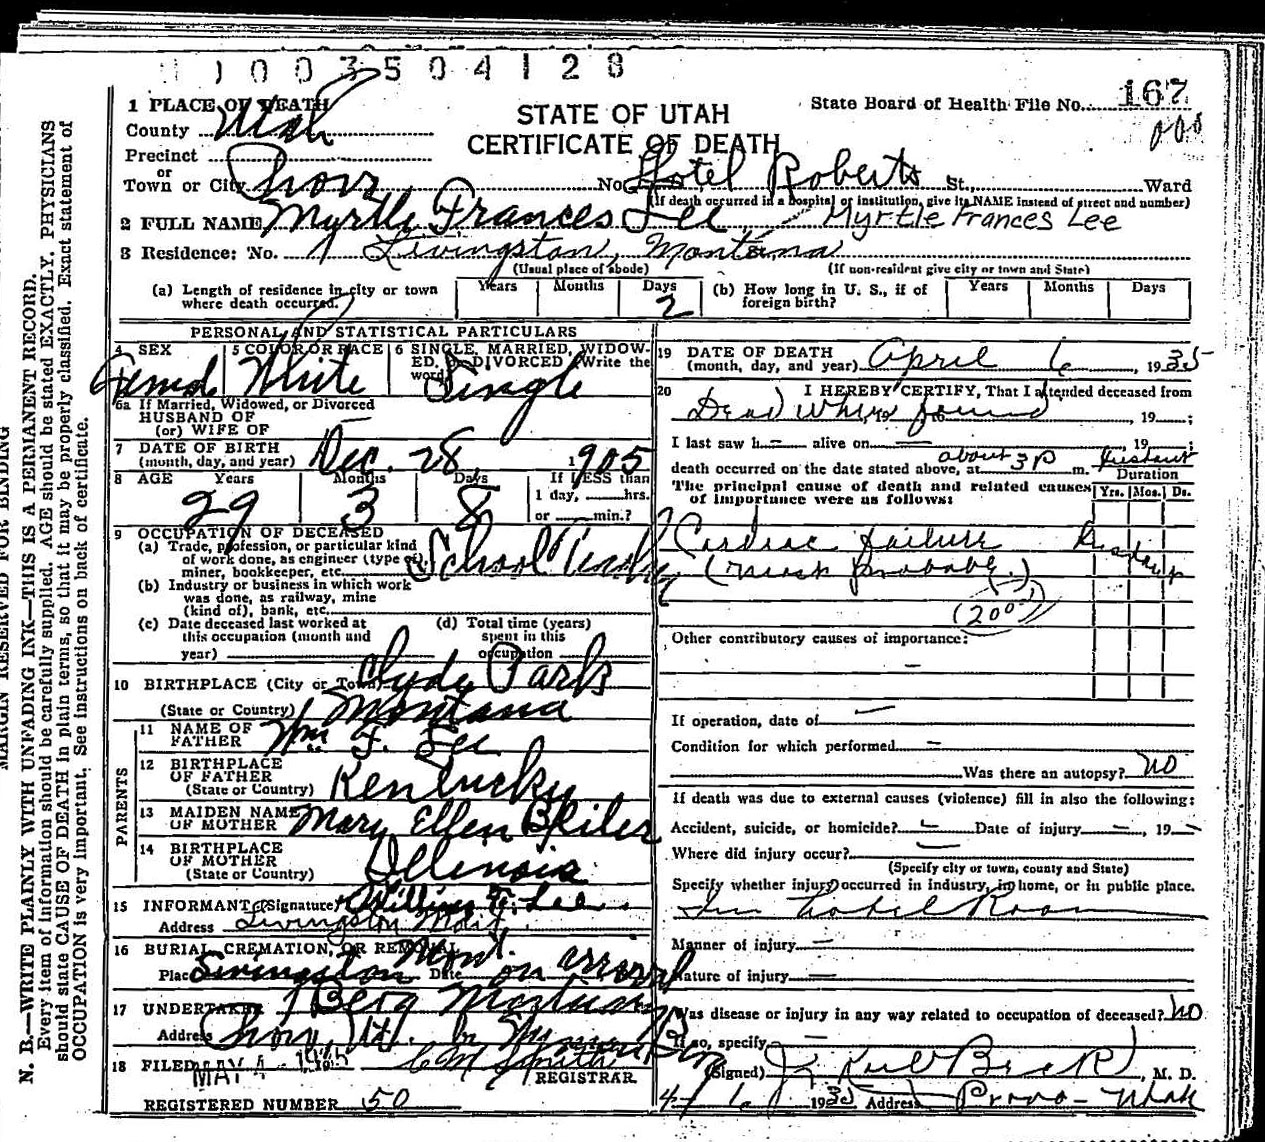 1003504128
1 PLACE OF DEATH
County Utah
Precinct
or
Town or City Provo
STATE OF UTAH
CERTIFICATE OF DEATH
State Board of Health File No. 167
No. Hotel Roberts St., Ward
(If death occurred in a hospital or institution, give its NAME instead of street and number)
2 FULL NAME Myrtle Frances Lee Myrtle Frances Lee
3 Residence: No. Livingston, Montana
(Usual place of abode) (If non-resident give city or town and State)
(a) Length of residence in city or town where death occurred. Years Months Days 2
(b) How long in U. S., if of foreign birth? Years Months Days
PERSONAL AND STATISTICAL PARTICULARS
4 SEX 5 COLOR OR RACE White
6 SINGLE, MARRIED, WIDOWED, DIVORCED (Write the word) Single
6a If Married, Widowed, or Divorced
HUSBAND OF
(or) WIFE OF
7 DATE OF BIRTH
(month, day, and year) Dec. 28, 1905
8 AGE Years 29 Months 3 Days 8
If LESS than
1 day, hrs.
or min.?
9 OCCUPATION OF DECEASED
(a) Trade, profession, or particular kind
of work done, as engineer (type of)
miner, bookkeeper, etc. School
(b) Industry or business in which work
was done, as railway, mine
(kind of), bank, etc.
(c) Date deceased last worked at
this occupation (month and
year)
(d) Total time (years)
spent in this
occupation
10 BIRTHPLACE (City or Town) Clyde Park
(State or Country) Montana
PARENTS
11 NAME OF
FATHER Wm F. Lee
12 BIRTHPLACE
OF FATHER
(State or Country) Kentucky
13 MAIDEN NAME
OF MOTHER Mary Ellen
14 BIRTHPLACE
OF MOTHER
(State or Country) Illenois
15 INFORMANT (Signature) F. Lee
Address Livingston
16 BURIAL, CREMATION, OR REMOVAL Mont.
Place Livingston Date on arrival
17 UNDERTAKER Berg Mortuary
Address Provo, Ut.
18 FILED MAY 4 C M Smith
REGISTRAR
REGISTERED NUMBER 50
19 DATE OF DEATH
(month, day, and year) April 6, 1935
20 I HEREBY CERTIFY, That I attended deceased from
Dead when found, 19 ;
I last saw h— alive on — 19 ;
death occurred on the date stated above, at about 3 p m.
Duration
The principal cause of death and related causes
of importance were as follows: Yrs. Mos. Ds.
Cardiac failure
(most probable)
(200)
Other contributory causes of importance:
—
If operation, date of —
Condition for which performed —
Was there an autopsy? no
If death was due to external causes (violence) fill in also the following:
Accident, suicide, or homicide? — Date of injury —, 19 —
Where did injury occur? —
(Specify city or town, county and State)
Specify whether injury occurred in industry, in home, or in public place.
In hotel Room
Manner of injury —
Nature of injury —
Was disease or injury in any way related to occupation of deceased? no
If so, specify —
(Signed) Beck, M. D.
1935 Address Provo - Utah
MARGIN RESERVED FOR BINDING
N. B.—WRITE PLAINLY WITH UNFADING INK—THIS IS A PERMANENT RECORD.
Every item of information should be carefully supplied. AGE should be stated EXACTLY. PHYSICIANS
should state CAUSE OF DEATH in plain terms, so that it may be properly classified. Exact statement of
OCCUPATION is very important. See instructions on back of certificate.